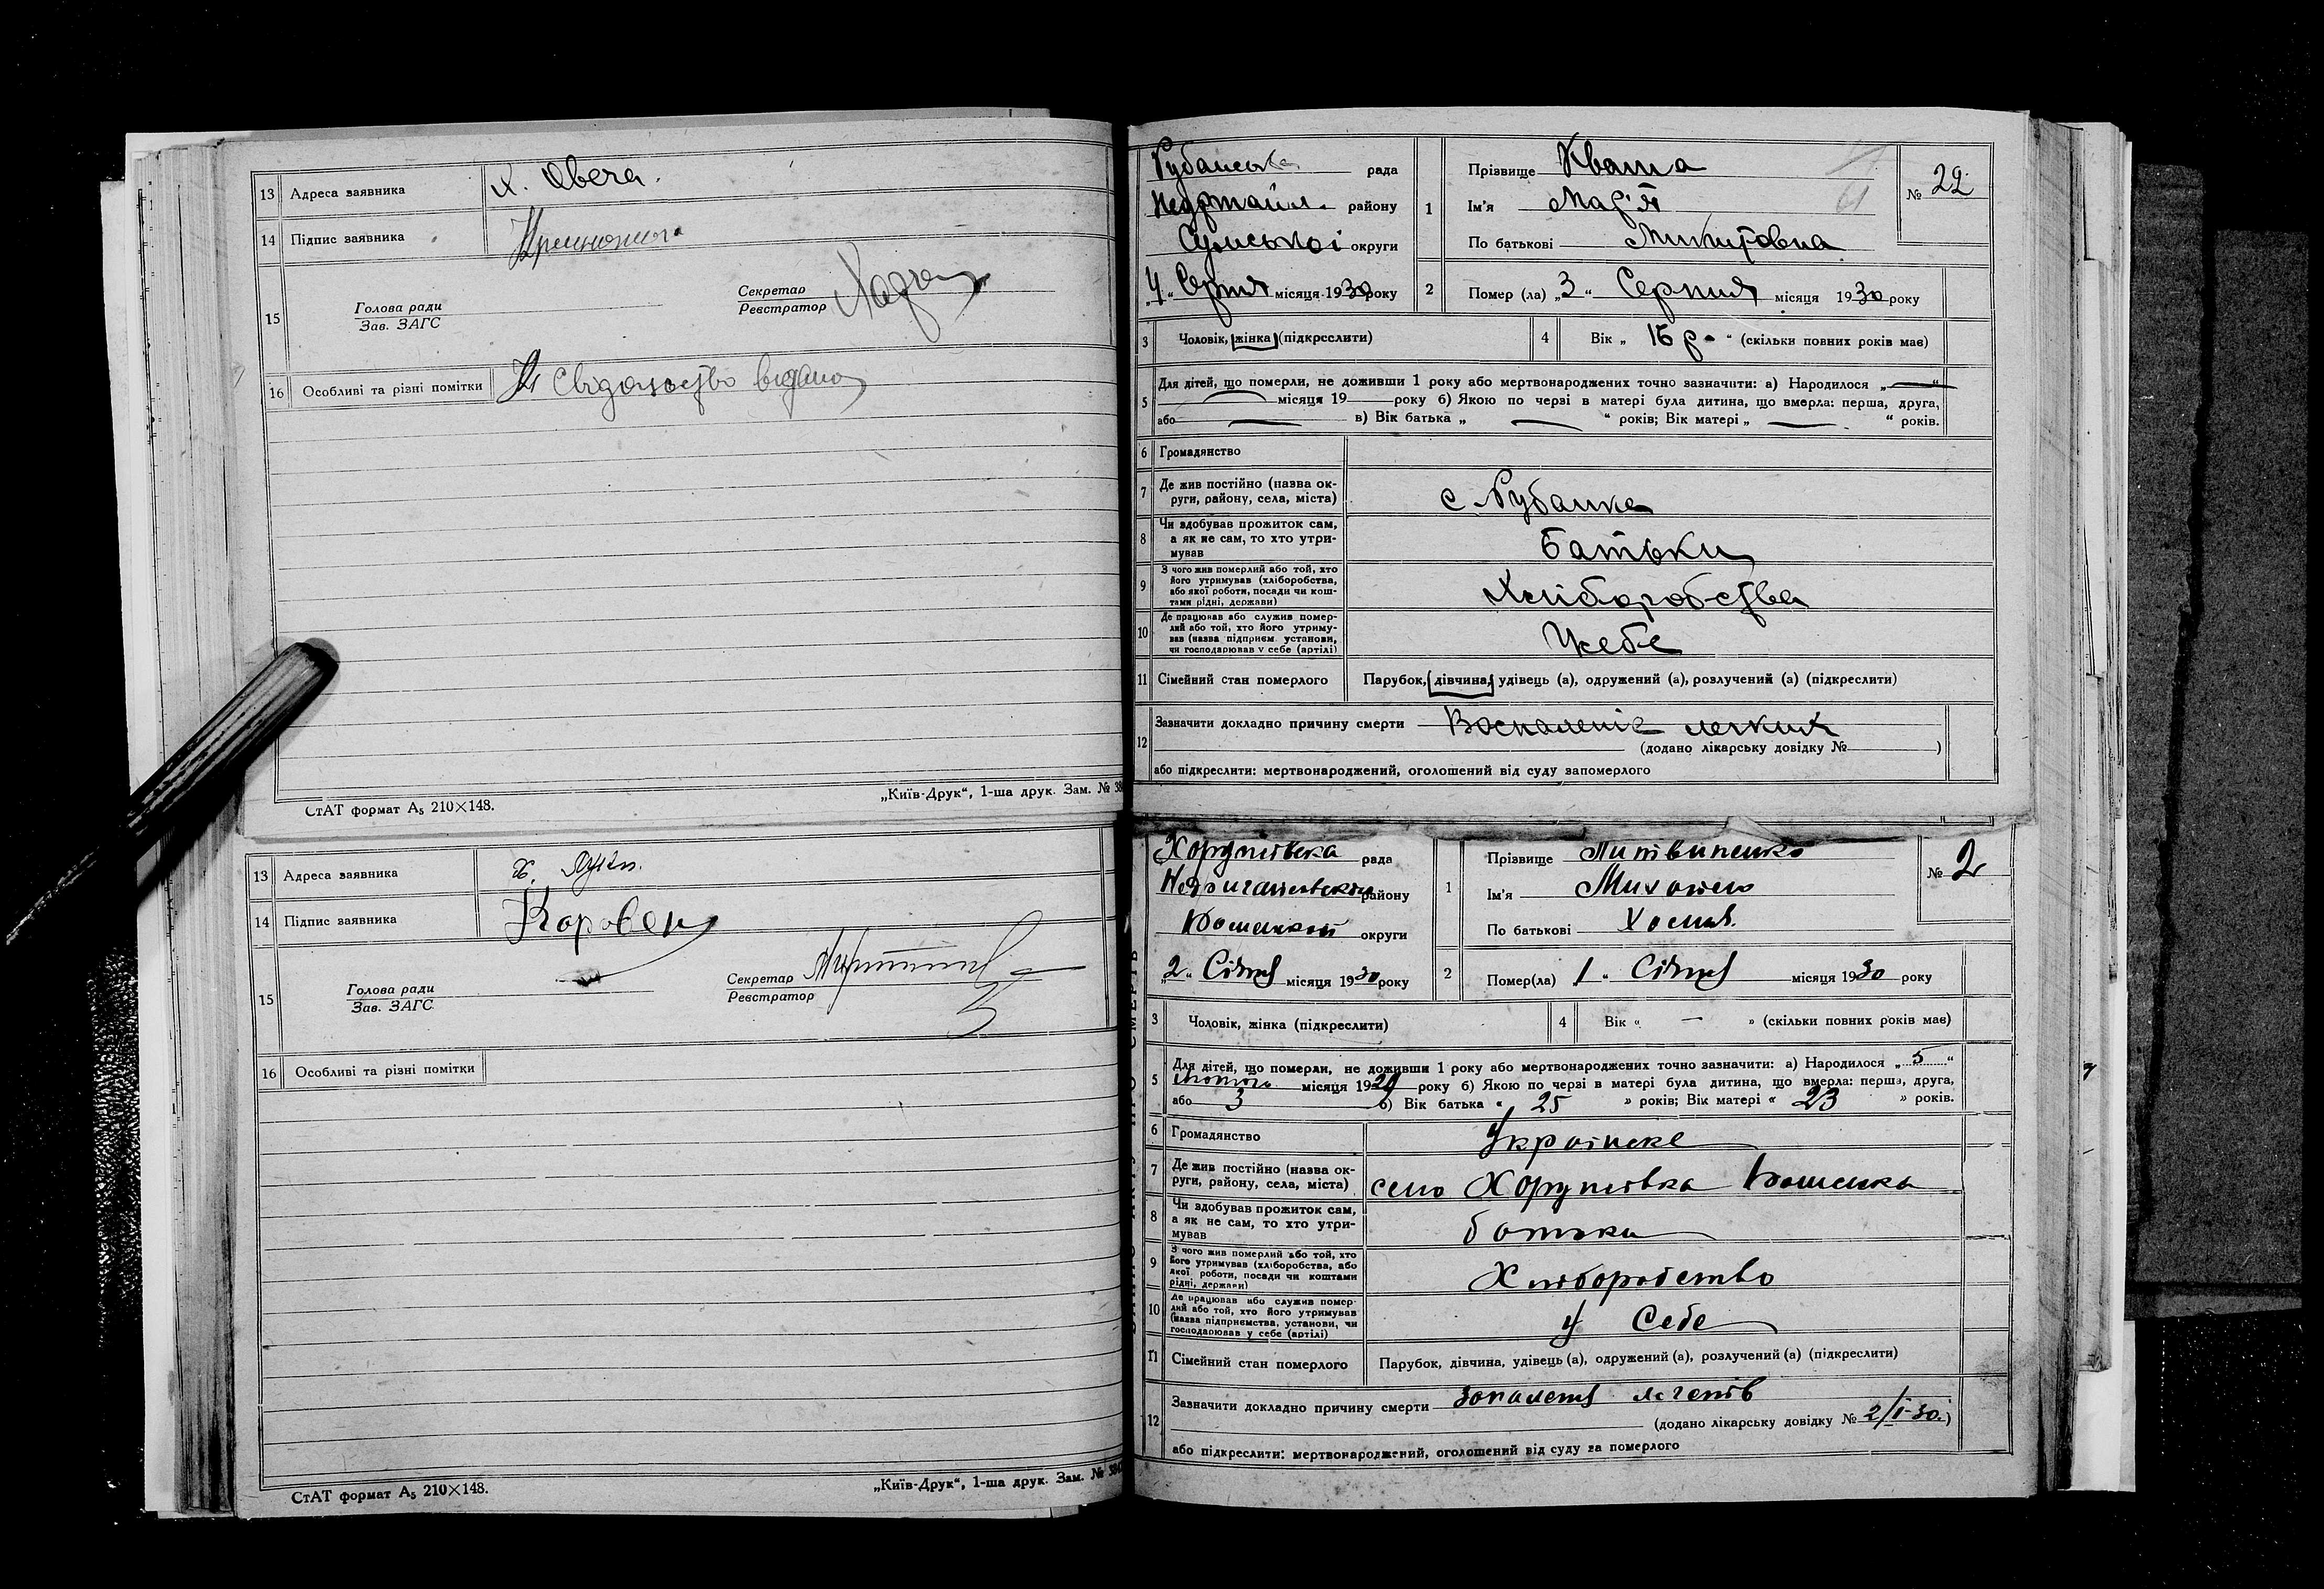 13 Адреса заявника х. Овеча.
14 Підпис заявника
15 Голова ради
Зав. ЗАГС
Секретар
Реєстратор
16 Особливі та різні помітки Свідоцтво видано
СтАТ формат А5 210×148.
„Київ-Друк“, 1-ша друк. Зам. №
13 Адреса заявника х.
14 Підпис заявника
15 Голова ради
Зав. ЗАГС
Секретар
Реєстратор
16 Особливі та різні помітки
СтАТ формат А5 210×148.
„Київ-Друк“, 1-ша друк. Зам. №
Рубанська рада
району
Сумської округи
„4“ Серпня місяця 1930 року
1 Прізвище Кваша
Ім'я Мар'я
По батькові Микитовна
№ 22
2 Помер (ла) „3“ Серпня місяця 1930 року
3 Чоловік, жінка (підкреслити)
4 Вік „ 15 р. “ (скільки повних років має)
5 Для дітей, що померли, не доживши 1 року або мертвонароджених точно зазначити: а) Народилося „—“
місяця 19 року б) Якою по черзі в матері була дитина, що вмерла: перша, друга,
або — в) Вік батька „ — “ років; Вік матері „ — “ років.
6 Громадянство
7 Де жив постійно (назва ок-
руги, району, села, міста) с. Рубанка
8 Чи здобував прожиток сам,
а як не сам, то хто утри-
мував батьки
9 З чого жив померлий або той, хто
його утримував (хліборобства,
або якої роботи, посади чи кош-
тами рідні, держави) Хліборобства
10 Де працював або служив помер-
лий або той, хто його утриму-
вав (назва підприєм. установи,
чи господарював у себе (артілі) У себе
11 Сімейний стан померлого Парубок, дівчина, удівець (а), одружений (а), розлучений (а) (підкреслити)
12 Зазначити докладно причину смерти Воспаленіе легких
(додано лікарську довідку № )
або підкреслити: мертвонароджений, оголошений від суду запомерлого
Хоружівська рада
району
округи
„2“ Січня місяця 1930 року
1 Прізвище Литвиненко
Ім'я Михайло
По батькові
№ 2
2 Помер(ла) 1 “ Січня місяця 1930 року
3 Чоловік, жінка (підкреслити)
4 Вік « — » (скільки повних років має)
5 Для дітей, що померли, не доживши 1 року або мертвонароджених точно зазначити: а) Народилося „ 5 “
лютого місяця 1929 року б) Якою по черзі в матері була дитина, що вмерла: перша, друга,
або 3 б) Вік батька « 25 » років; Вік матері « 23 » років.
6 Громадянство Українске
7 Де жив постійно (назва ок-
руги, району, села, міста) село Хоружівка
8 Чи здобував прожиток сам,
а як не сам, то хто утри-
мував батьки
9 З чого жив померлий або той, хто
його утримував (хліборобства, або
якої роботи, посади чи коштами
рідні, держави) Хліборобство
10 Де працював або служив помер-
лий або той, хто його утримував
(назва підприємства, установи, чи
господарював у себе (артілі) у Себе
11 Сімейний стан померлого Парубок, дівчина, удівець (а), одружений (а), розлучений (а) (підкреслити)
12 Зазначити докладно причину смерти запаленя легенів
(додано лікарську довідку № 2/I-30.)
або підкреслити: мертвонароджений, оголошений від суду за померлого